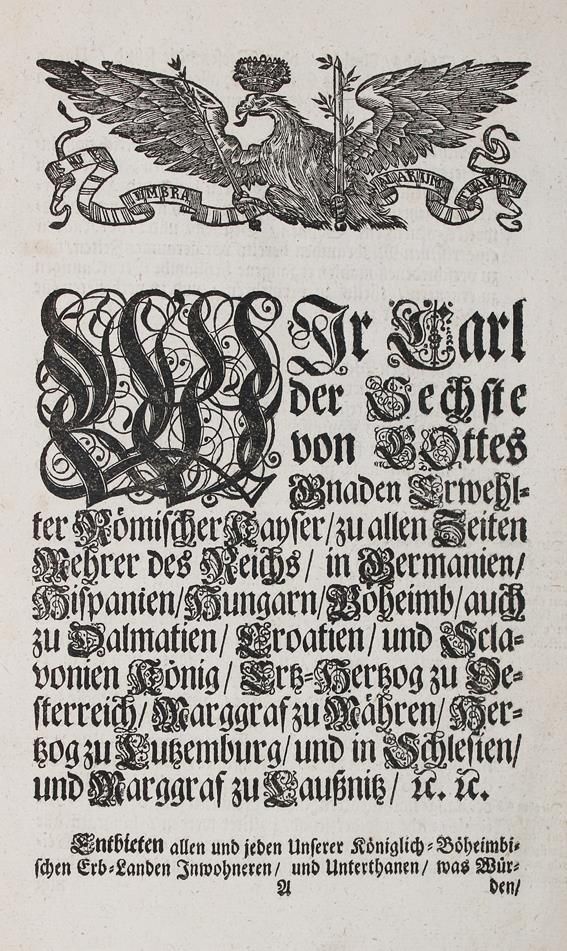 SUB
UMBRA
ALARUM
TUARUM
WIr Carl
der Sechste
von GOttes
Gnaden Erwehl-
ter Römischer Kayser/ zu allen Zeiten
Mehrer des Reichs/ in Germanien/
Hispanien/ Hungarn/ Böheimb/ auch
zu Dalmatien/ Croatien/ und Scla-
vonien König/ Ertz-Hertzog zu Oe-
sterreich/ Marggraf zu Mähren/ Her-
tzog zu Lutzemburg/ und in Schlesien/
und Marggraf zu Laußnitz/ ꝛc. ꝛc.
Entbieten allen und jeden Unserer Königlich-Böheimbi-
schen Erb-Landen Inwohneren/ und Unterthanen/ was Wür-
A
den/